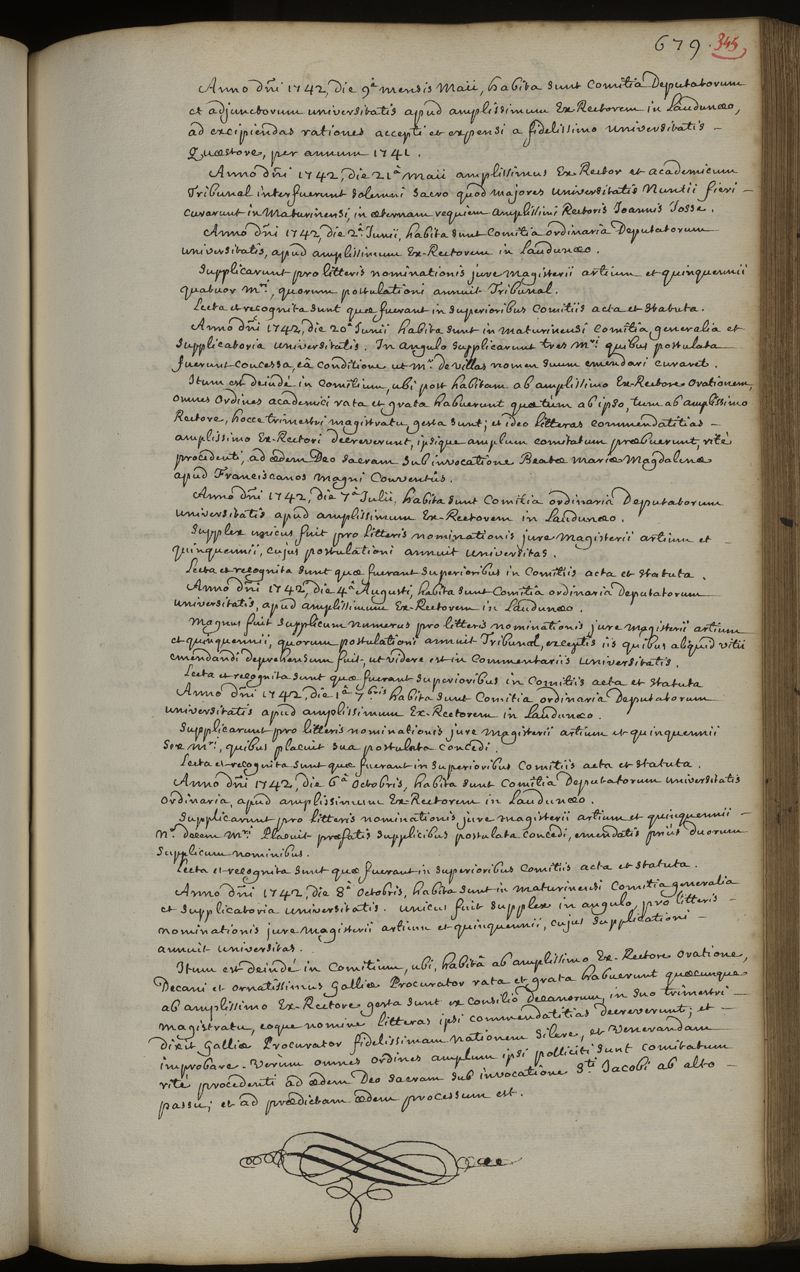 679. 345
Anno dñi 1742, die 9ª mensis Maii, habita sunt Comitia Deputatorum
et adjunctorum universitatis apud amplissimum Ex-Rectorem in Laudunæo,
ad excipiendas rationes accepti et expensi a fidelissimo universitatis –
Quæstore, per annum 1741.
Anno dñi 1742, die 21ª Maii amplissimus Ex-Rector et academicum
Tribunal interfuerunt solemni sacro quod majores universitatis Nuntii fieri –
curarunt in Maturinensi, in æternam requiem amplissimi Rectoris Joannis Josse.
Anno dñi 1742, die 2ª Junii, habita sunt Comitia ordinaria Deputatorum
universitatis, apud amplissimum Ex-Rectorem in Laudunæo.
Supplicarunt pro litteris nominationis jure magisterii artium et quinquennii
quatuor m.ri, quorum postulationi annuit Tribunal.
Lecta et recognita sunt quæ fuerant in superioribus Comitiis acta et statuta.
Anno dñi 1742, die 20ª Junii habita sunt in maturinensi Comitia generalia et
supplicatoria universitatis. In angulo supplicarunt tres m.ri quibus postulata
fuerunt concessa, eâ conditione ut m.r de villas nomen suum emendari curaret.
Itum est deinde in Comitium, ubi post habitam ab amplissimo Ex-Rectore orationem,
omnes ordines academici rata et grata habuerunt quæ tum ab ipso, tum ab amplissimo
Rectore, hocce trimestri magistratu gesta sunt; et ideo litteras commendatitias –
amplissimo Ex-Rectori decreverunt, ipsique amplum comitatum præbuerunt, ritè
procedenti, ad ædem Deo sacram sub invocatione Beatæ mariæ Magdalenæ
apud Franciscanos magni Conventûs.
Anno dñi 1742, die 7ª Julii, habita sunt Comitia ordinaria Deputatorum
universitatis apud amplissimum Ex-Rectorem in Laudunæo.
Supplex unicus fuit pro litteris nominationis jure magisterii artium et –
quinquennii, cujus postulationi annuit universitas.
Lecta et recognita sunt quæ fuerant superioribus in Comitiis acta et statuta.
Anno dñi 1742, die 4ª Augusti, habita sunt Comitia ordinaria Deputatorum
universitatis, apud amplissimum Ex-Rectorem in Laudunæo.
Magnus fuit supplicum numerus pro litteris nominationis jure magisterii artium
et quinquennii, quorum postulationi annuit Tribunal, exceptis iis quibus aliquid vitii
emendandi deprehensum fuit, ut videre est in Commentariis universitatis.
Lecta et recognita sunt quæ fuerant superioribus in Comitiis acta et statuta
Anno dñi 1742, die 1ª 7bris habita sunt Comitia ordinaria Deputatorum
universitatis apud amplissimum Ex-Rectorem in Laudunæo.
Supplicarunt pro litteris nominationis jure magisterii artium et quinquennii
sex m.ri, quibus placuit sua postulata concedi.
Lecta et recognita sunt quæ fuerant in superioribus Comitiis acta et statuta.
Anno dñi 1742, die 6ª Octobris, habita sunt Comitia Deputatorum universitatis
ordinaria, apud amplissimum Ex-Rectorem in Laudunæo.
Supplicarunt pro litteris nominationis jure magisterii artium et quinquennii –
N.º decem m.ri Placuit præfatis supplicibus postulata concedi, emendatis priùs duorum
supplicum nominibus.
Lecta et recognita sunt quæ fuerant in superioribus Comitiis acta et statuta.
Anno dñi 1742, die 8ª Octobris, habita sunt in maturinensi Comitia generalia
et supplicatoria universitatis. unicus fuit supplex in angulo, pro litteris –
nominationis jure magisterii artium et quinquennii, cujus supplicationi –
annuit universitas.
Itum est deindè in Comitium, ubi, habitâ ab amplissimo Ex-Rectore oratione,
Decani et ornatissimus Galliæ Procurator rata et grata habuerunt quæcunque
ab amplissimo Ex-Rectore gesta sunt ex consilio decanorum, in suo trimestri –
magistratu, eoque nomine litteras ipsi commendatitias decreverunt; et –
dixit Galliæ Procurator fidelissimam nationem silere, et Venerandam
improbare. Verùm omnes ordines amplum ipsi polliciti sunt comitatum
ritè procedenti ad ædem Deo sacram sub invocatione Sti Jacobi ab alto –
passu; et ad prædictam ædem processum est.